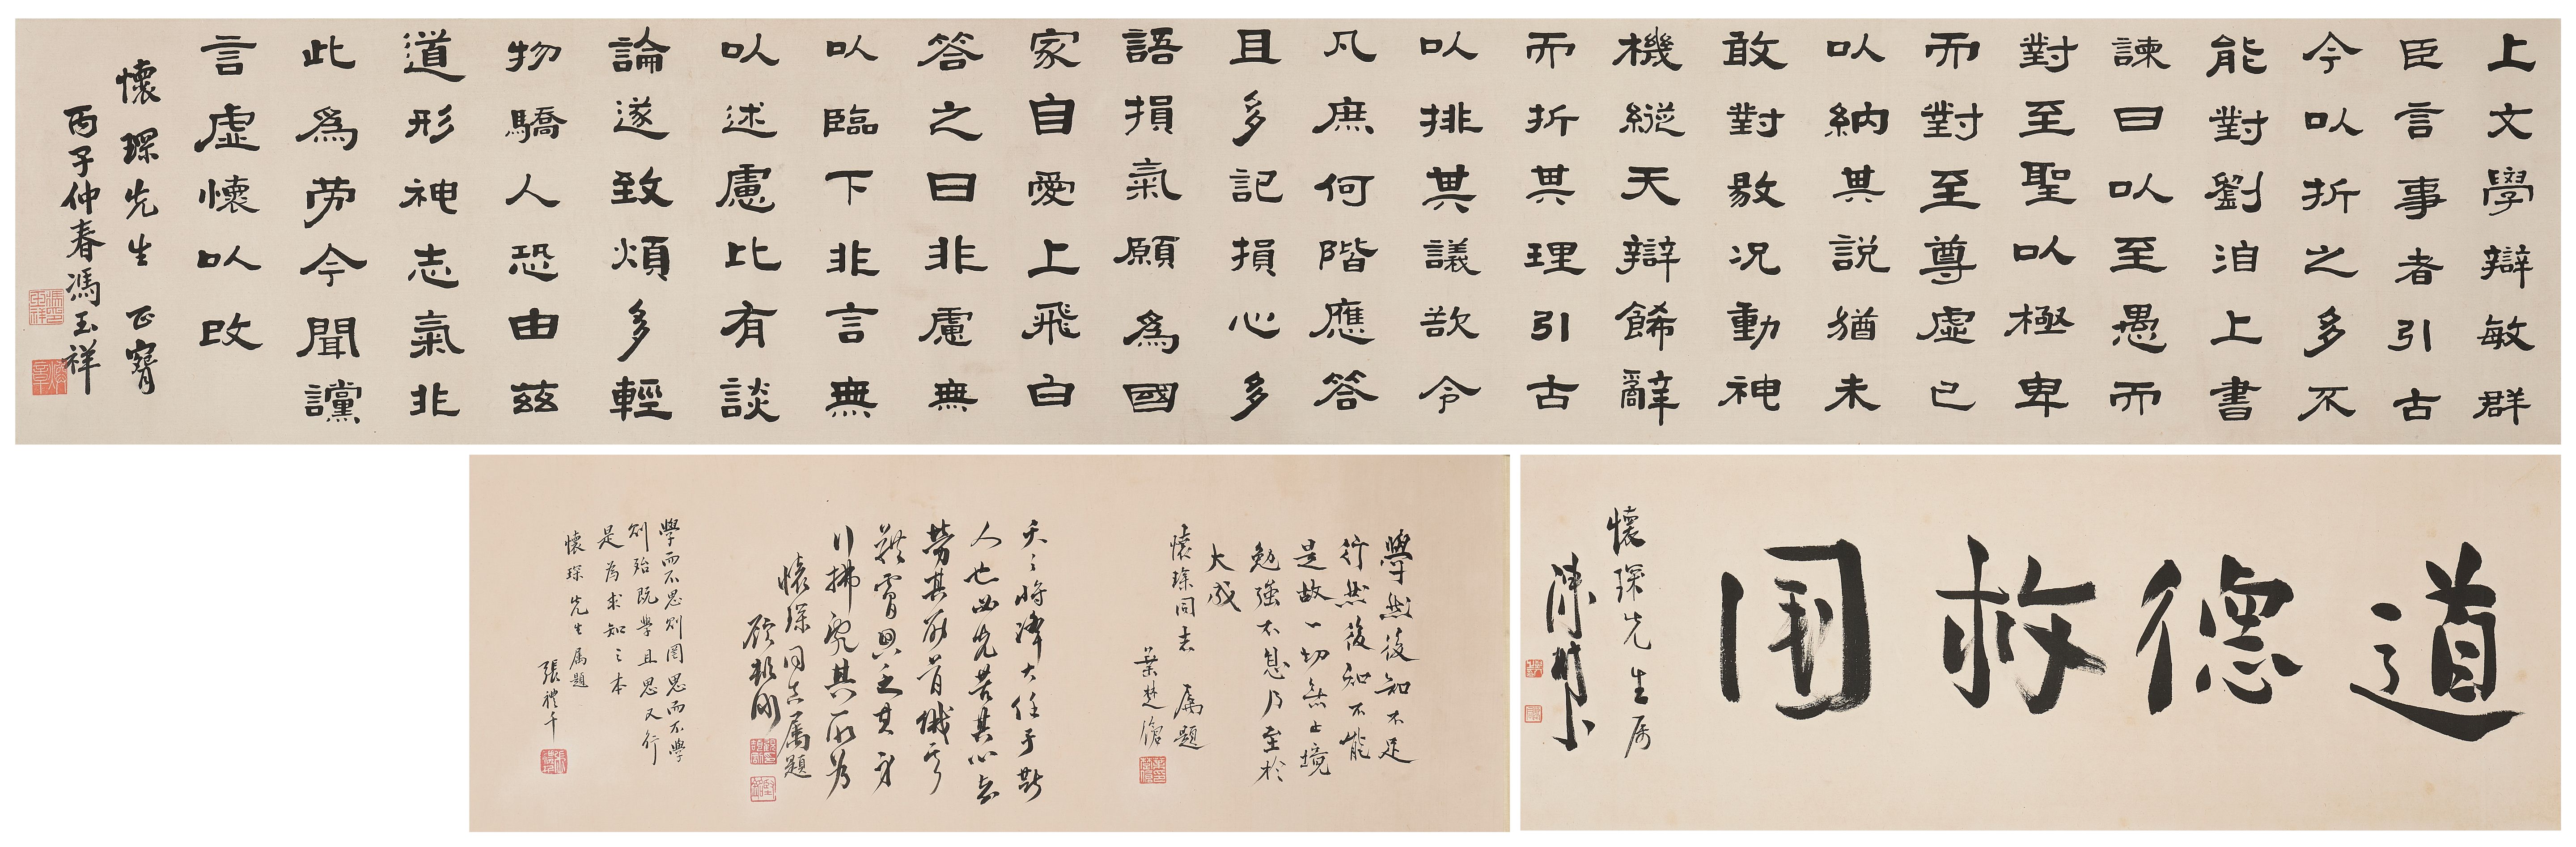 上文學辯敏群
臣言事者引古
今以折之多不
能對劉洎上書
諫曰以至愚而
對至聖以極卑
而對至尊虛已
以納其説猶未
敢對敭况動神
機縱天辯餙辭
而折其理引古
以排其議欲令
凡庶何階應答
且多記損心多
語損氣願爲國
家自愛上飛白
答之曰非慮無
以臨下非言無
以述慮比有談
論遂致煩多輕
物驕人恐由兹
道形神志氣非
此爲勞今聞讜
言虛懷以改
懷琛先生 正
丙子仲春馮玉祥
道德救国
懷琛先生属
陳樹人
學然後知不足
行然後知不能
是故一切無止境
勉強不息乃至於
大成
懷琛同志 属題
葉楚傖
天之將降大任于斯
人也必先苦其心志
勞其筋骨餓其
體膚空乏其身
行拂亂其所為
懷琛同志属題
顧頡剛
學而不思則罔思而不學
則殆既學且思又行
是為求知之本
懷琛先生属題
張禮千